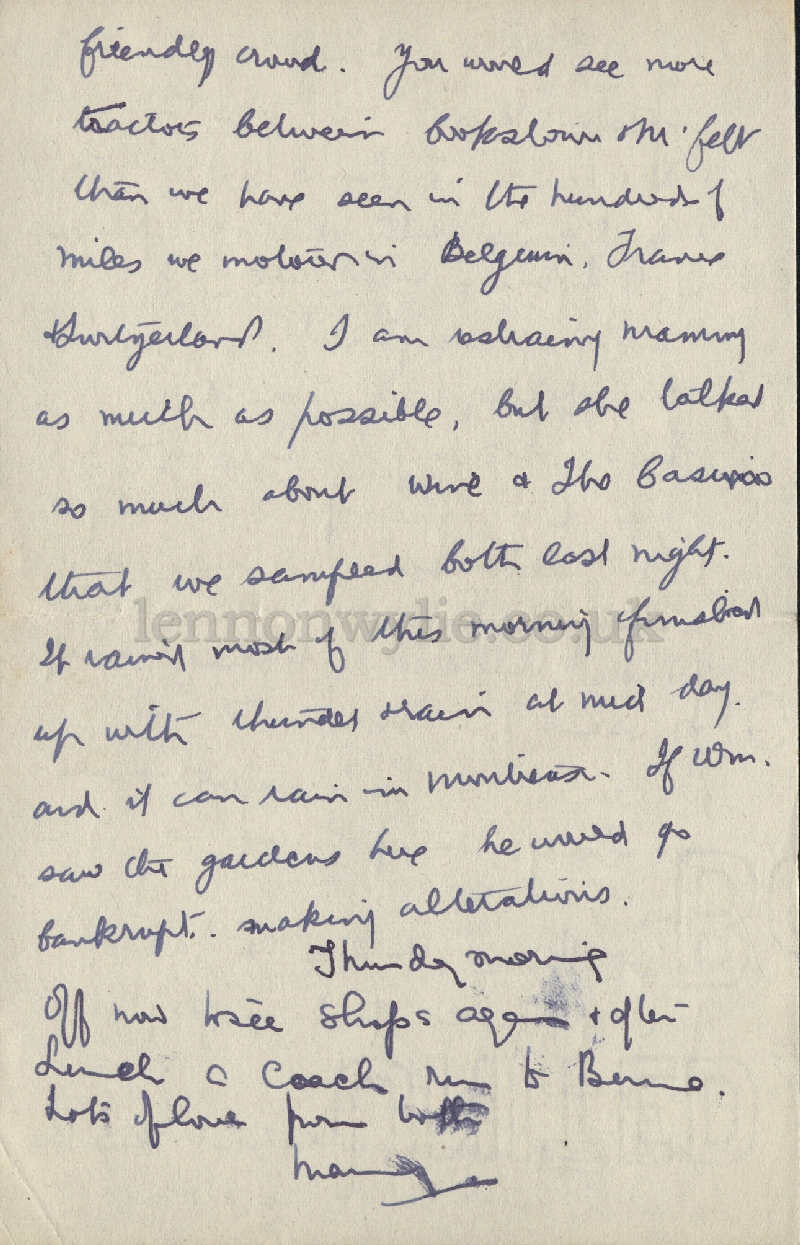 friendly crowd. You would see more
tractors between Cookstown & M'felt
than we have seen in the hundreds of
miles we motored in Belguim, France
& Switzerland. I am restraining mammy
as much as possible, but she talked
so much about wine & the Casinos
that we sampled both last night.
It rained most of this morning finished
up with thunder & rain at mid day.
and it can rain in Montreux. If Wm.
saw the gardens here he would go
bankrupt. making alterations.
Thursday morning
Off now to see shops again & after
Lunch a coach run to Berne.
Lots of love from both
Mammy
lennonwylie.co.uk